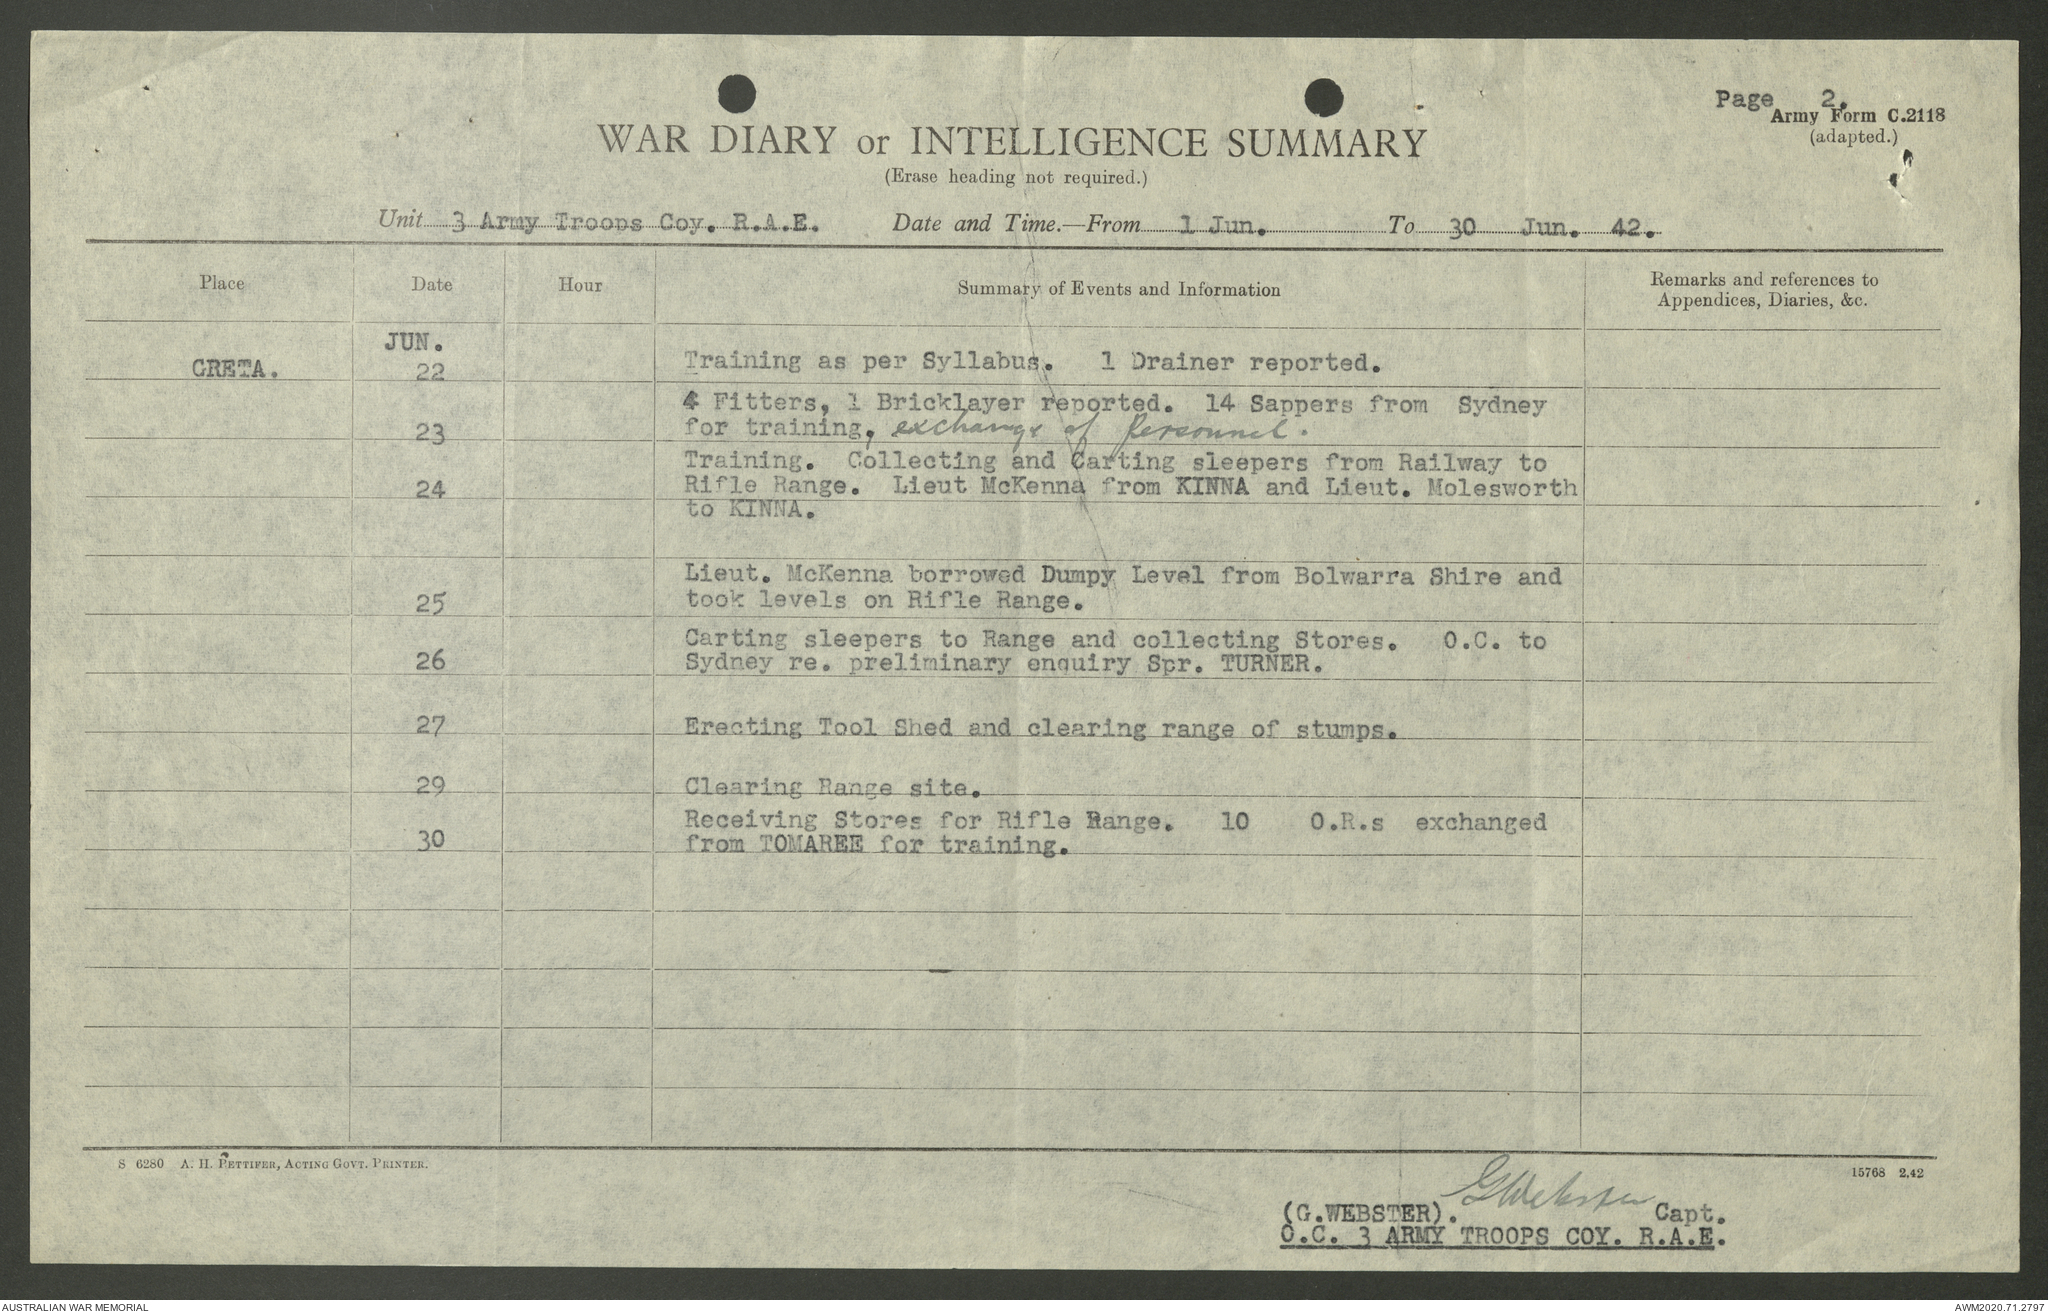 Page 2.
Army Form C.2118
(adapted.)
WAR DIARY or INTELLIGENCE SUMMARY
(Erase heading not required.)
Unit 3 Army Troops Coy. R.A.E. Date and Time.—From 1 Jun. To 30 Jun. 42.
Place Date Hour Summary of Events and Information Remarks and references to
Appendices, Diaries, &c.
JUN.
GRETA. 22 Training as per Syllabus. 1 Drainer reported.
4 Fitters, 1 Bricklayer reported. 14 Sappers from Sydney
23 for training, exchange of Personnel.
Training. Collecting and Carting sleepers from Railway to
24 Rifle Range. Lieut McKenna from KINNA and Lieut. Molesworth
to KINNA.
Lieut. McKenna borrowed Dumpy Level from Bolwarra Shire and
25 took levels on Rifle Range.
Carting sleepers to Range and collecting Stores. O.C. to
26 Sydney re. preliminary enquiry Spr. TURNER.
27 Erecting Tool Shed and clearing range of stumps.
29 Clearing Range site.
Receiving Stores for Rifle Range. 10 O.R.s exchanged
30 from TOMAREE for training.
S 6280 A. H. PETTIFER, ACTING GOVT. PRINTER.
15768 2.42
GWebster
(G.WEBSTER). Capt.
O.C. 3 ARMY TROOPS COY. R.A.E.
AUSTRALIAN WAR MEMORIAL
AWM2020.71.2797